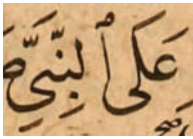 عَلَى ٱلنَّبِيِّ